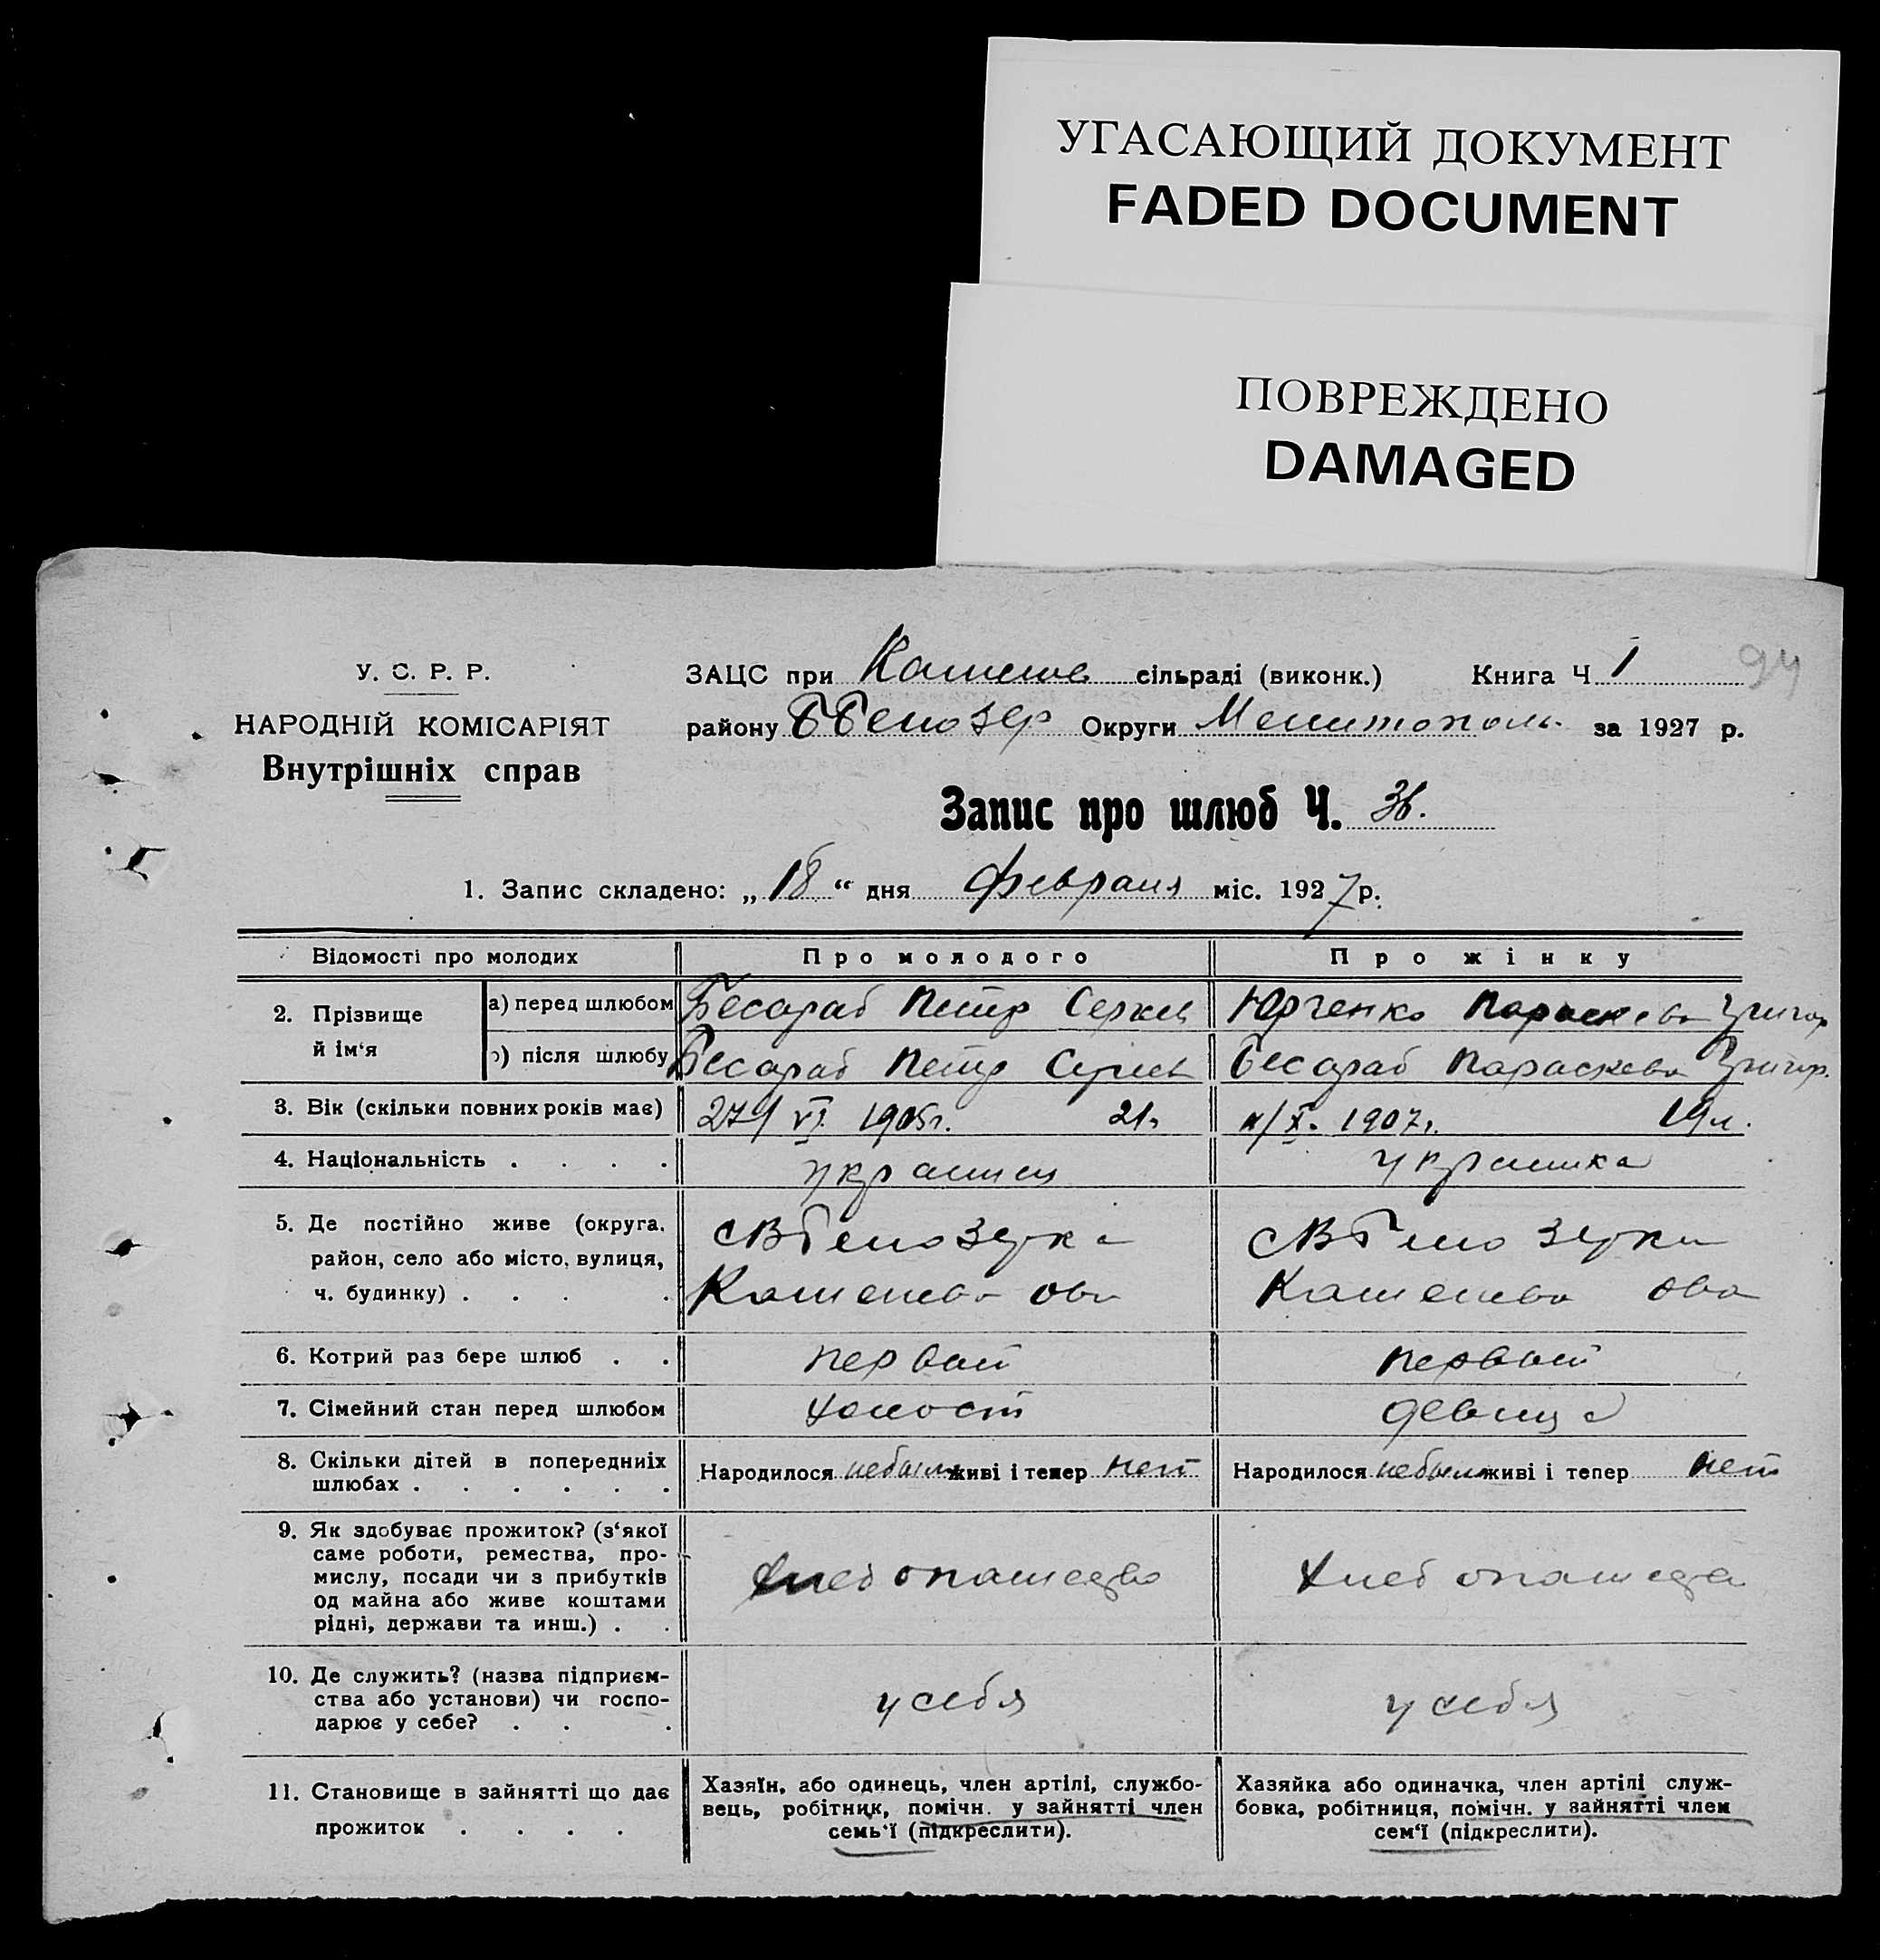 УГАСАЮЩИЙ ДОКУМЕНТ
FADED DOCUMENT
ПОВРЕЖДЕНО
DAMAGED
У. С. Р. Р.
НАРОДНІЙ КОМІСАРІЯТ
Внутрішніх справ
ЗАЦС при сільраді (виконк.) Книга Ч 1 94
району Округи Мелитополь. за 1927 р.
Запис про шлюб Ч. 36.
1. Запис складено: „18“ дня февраля міс. 1927 р.
Відомості про молодих Про молодого Про жінку
2. Прізвище й ім‘я
а) перед шлюбом Бесараб Петр Юрченко Параскева Григор
б) після шлюбу Бесараб Петр Бесараб Параскева Григор.
3. Вік (скільки повних років має) 27/VI. 1905г. 21г. /X. 1907г. 19л.
4. Національність . . . . украинец украинка
5. Де постійно живе (округа, район, село або місто, вулиця, ч. будинку) . . . .
СВБелозерка СВБелозерка
6. Котрий раз бере шлюб . . первый первый
7. Сімейний стан перед шлюбом холост девица
8. Скільки дітей в попередниіх шлюбах . . . . . .
Народилося небыло живі і тепер нет Народилося небыло живі і тепер нет
9. Як здобуває прожиток? (з‘якої
саме роботи, ремества, про-
мислу, посади чи з прибутків
од майна або живе коштами
рідні, держави та инш.) . .
хлебопашество хлебопашество
10. Де служить? (назва підприєм-
ства або установи) чи госпо-
дарює у себе? . . .
у себя у себя
11. Становище в зайнятті що дає
прожиток . . . .
Хазяїн, або одинець, член артілі, службо-
вець, робітник, помічн. у зайнятті член
семь‘ї (підкреслити).
Хазяйка або одиначка, член артілі служ-
бовка, робітниця, помічн. у зайнятті член
сем‘ї (підкреслити).